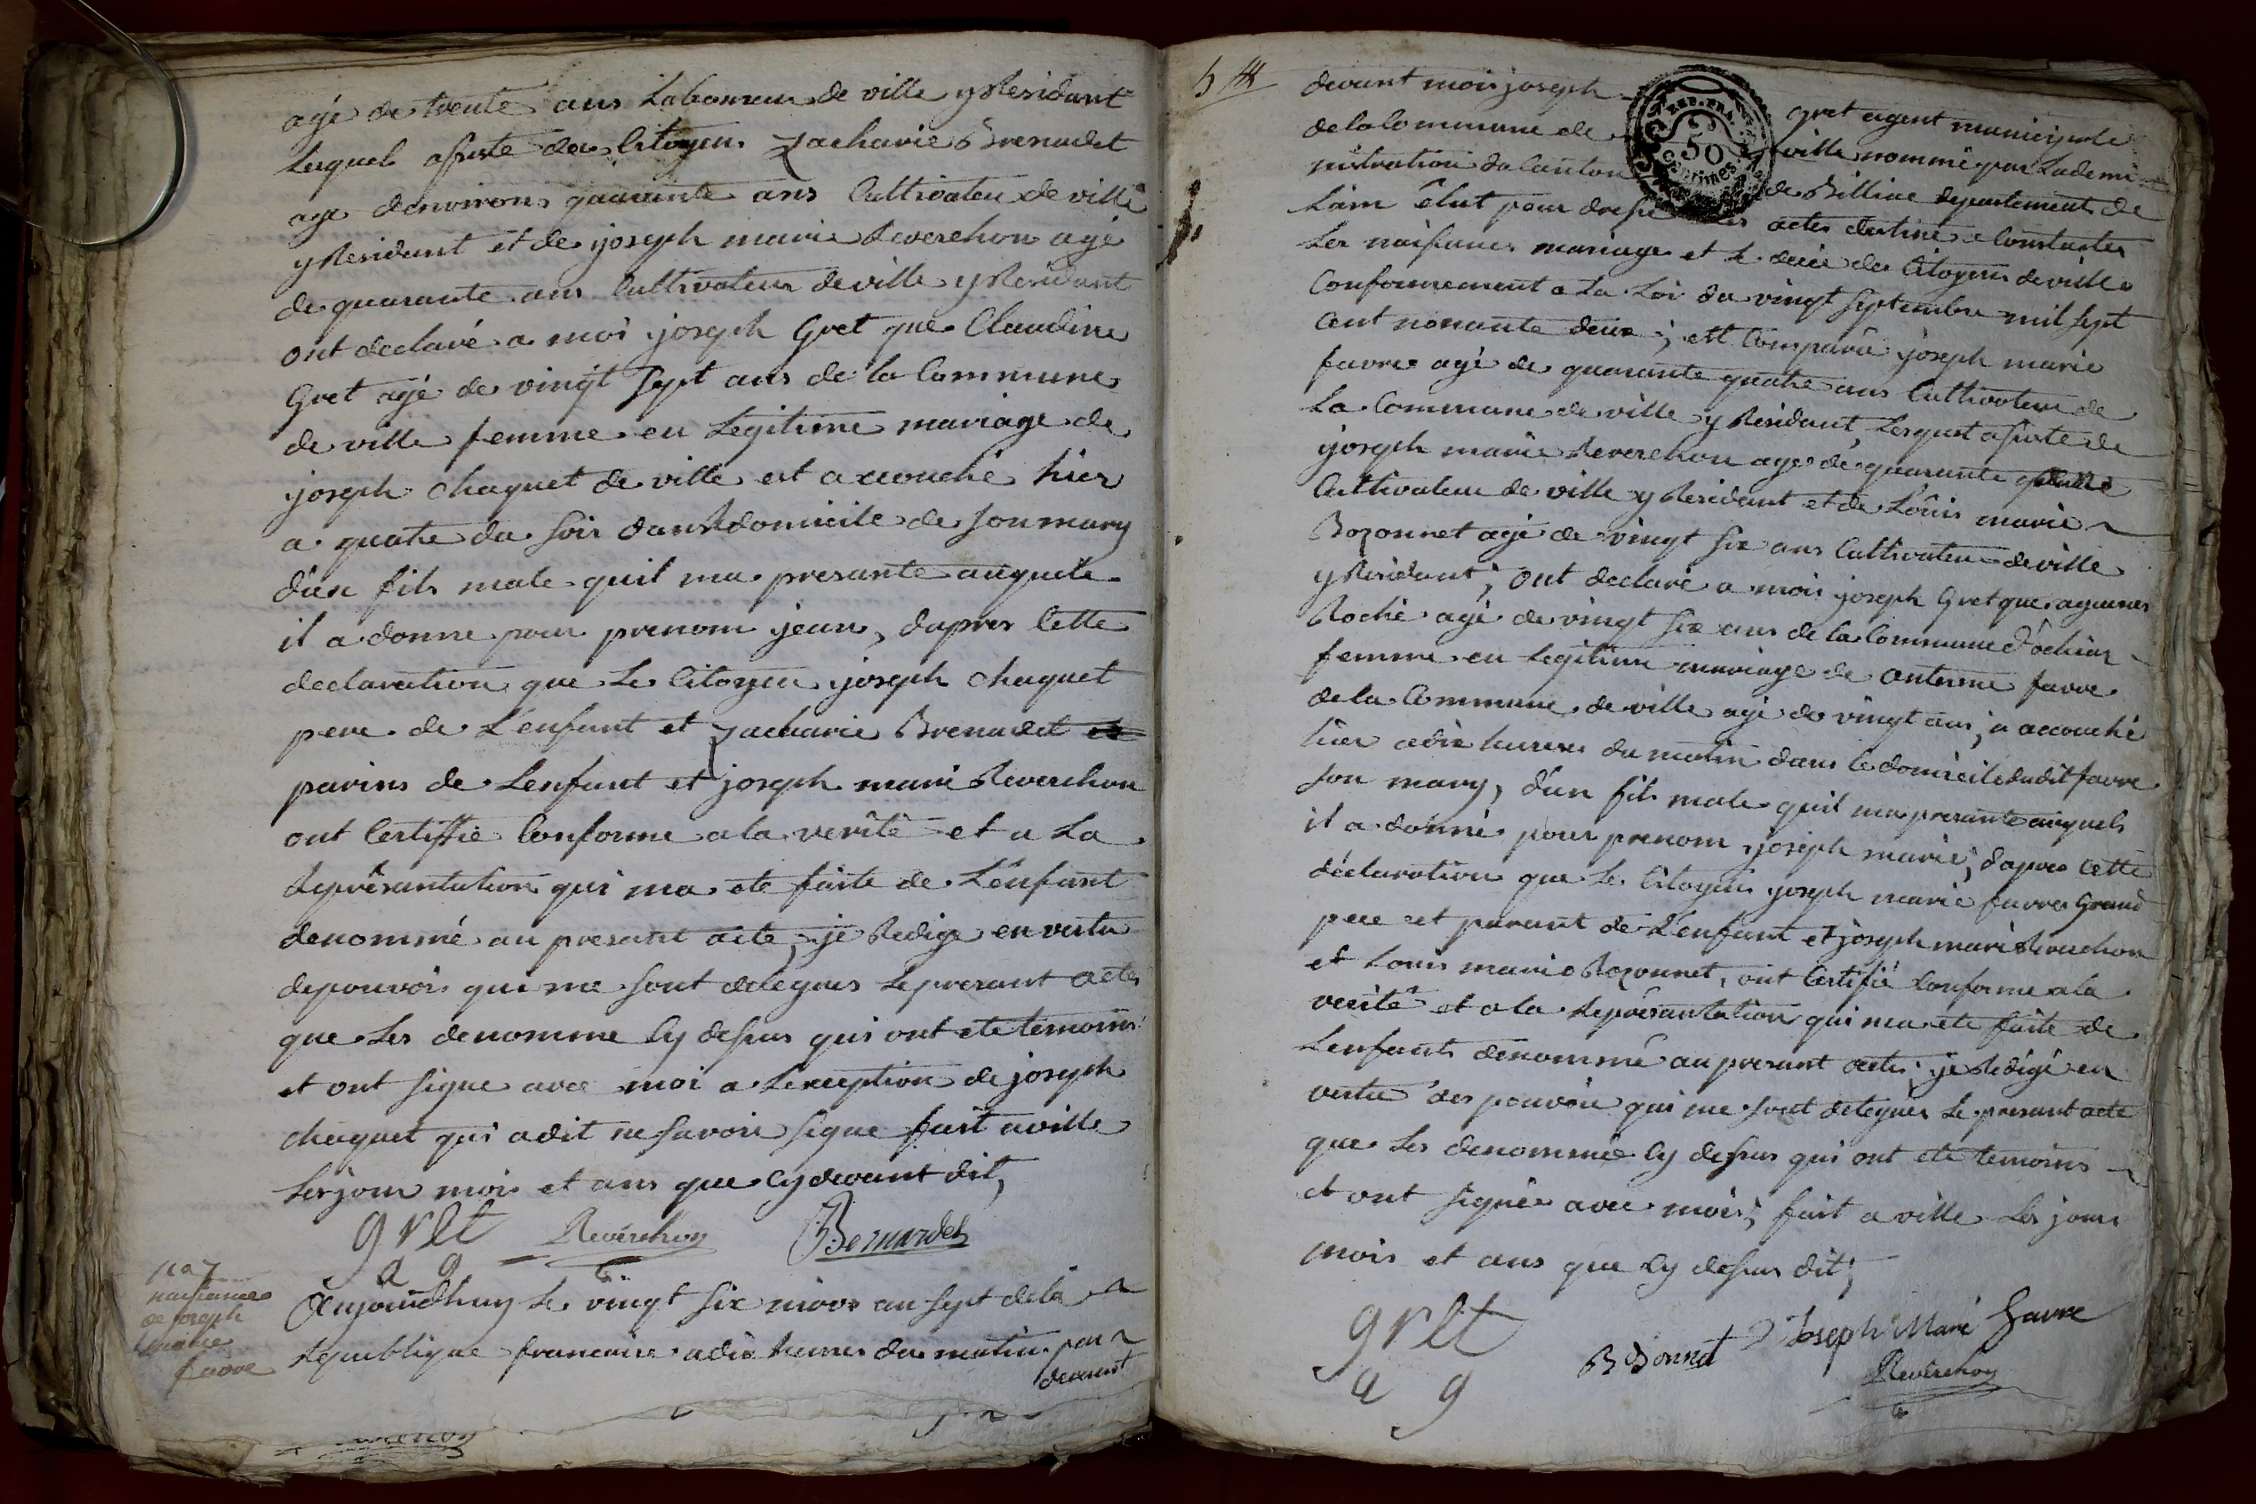 agé de trente ans Laboureur de ville y Residant
Lequel assisté des Citoyens Zacharie Brenadet
age denviron quarante ans Cultivateu de ville
y Residant et de joseph marie Reverchon agé
de quarante ans Cultivateur de ville y Residant
ont declaré a moi joseph Gret que Claudine
Gret agé de vingt sept ans de la Commune
de ville femme en Legitime mariage de
joseph Chaquet de ville est accouché hier
a quatre du soir dans Le domicile de son mary
d'un fils male quil ma presante auquele
il a donne pour prenom jean, dapres Cette
declaration que Le Citoyen joseph Chaquet
pere de L'enfant et Zacharie Brenadet
parins de Lenfant et joseph marie Reverchon
ont Certiffie Conforme a la verité et a La
Representation qui ma ete faite de L'enfant
denommé au presant acte, je Redige en vertu
de pouvoir qui me sont delegues Le presant acte
que Les denomme Cy dessus qui ont ete temoins
et ont signe avec moi a Lexception de joseph
chaquet qui a dit ne savoir signe fait a ville
Les jour mois et ans que Cy devant dit,
gret Reverchon Bernardet
a g
no 7
naissance
de joseph
marie
favre
Aujourdhuy Le vingt six nivos an sept de la
Republique francaise a dix heures du matin par
devant
5
devant moi joseph gret agent municipale
de la Commune de ville nommé par Ladmi-
nistration du Canton de Billiat departement de
Lain élut pour dresse Les actes destiné a Constater
Les naissances mariage et Le décé des Citoyens de ville
Conformement a La Loi du vingt septembre mil sept
cent nonante deux; est Comparu joseph marie
favre agé de quarante quatre ans Cultivateur de
La Commune de ville y Residant, Lesquel assisté de
joseph marie Reverchon age de quarante
Cultivateur de ville y Residant et de Loüis marie
Bozonnet agé de vingt six ans Cultivateu de ville
y Residant; ont declaré a moi joseph Gret que
Roche agé de vingt six ans de la Commune d'ochiaz
femme en Legitime mariage de antoine favre
de la Commune de ville agé de vingt ans, a accouché
hier a dix heures du matin dans le domicile dudit favre
son mary, d'un fils male quil ma presante auquels
il a donné pour prenom joseph marie; dapres Cette
déclaration que Le Citoyen joseph marie favre Grand
pere et parant de L'enfant et joseph marie Reverchon
et Louis marie Bozonnet, ont Certifié Conforme a la
verité et a la Representation qui ma ete faite de
Lenfant denommé au presant acte; je Rédigé en
vertu des pouvoir qui me sont delegues Le presant acte
que Les denommé Cy dessus qui ont ete temoins
et ont signé avec moi; fait a ville Les jours
mois et ans que Cy dessus dit;
gret
a g
Bozonnet Joseph Marie favre
Reverchon
REP. FRA.
50
Centimes